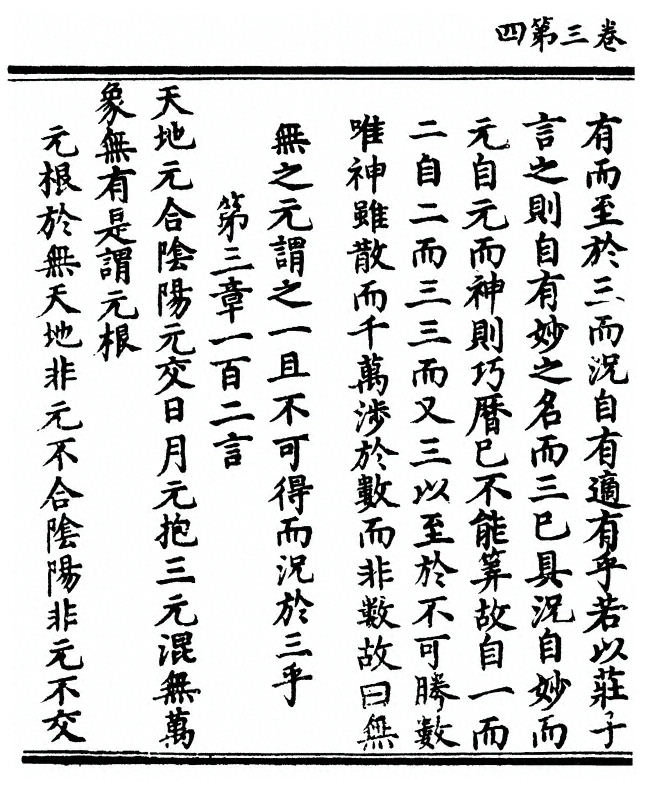 卷三第四
有而至於三而況自有適有乎若以莊子
言之則自有妙之名而三巳具況自妙而
元自元而神則巧曆巳不能筭故自一而
二自二而三三而又三以至於不可勝數
唯神雖散而千萬渉於數而非數故曰無
無之元謂之一且不可得而況於三乎
第三章一百二言
天地元合陰陽元交日月元抱三元混無萬
象無有是謂元根
元根於無天地非元不合陰陽非元不交